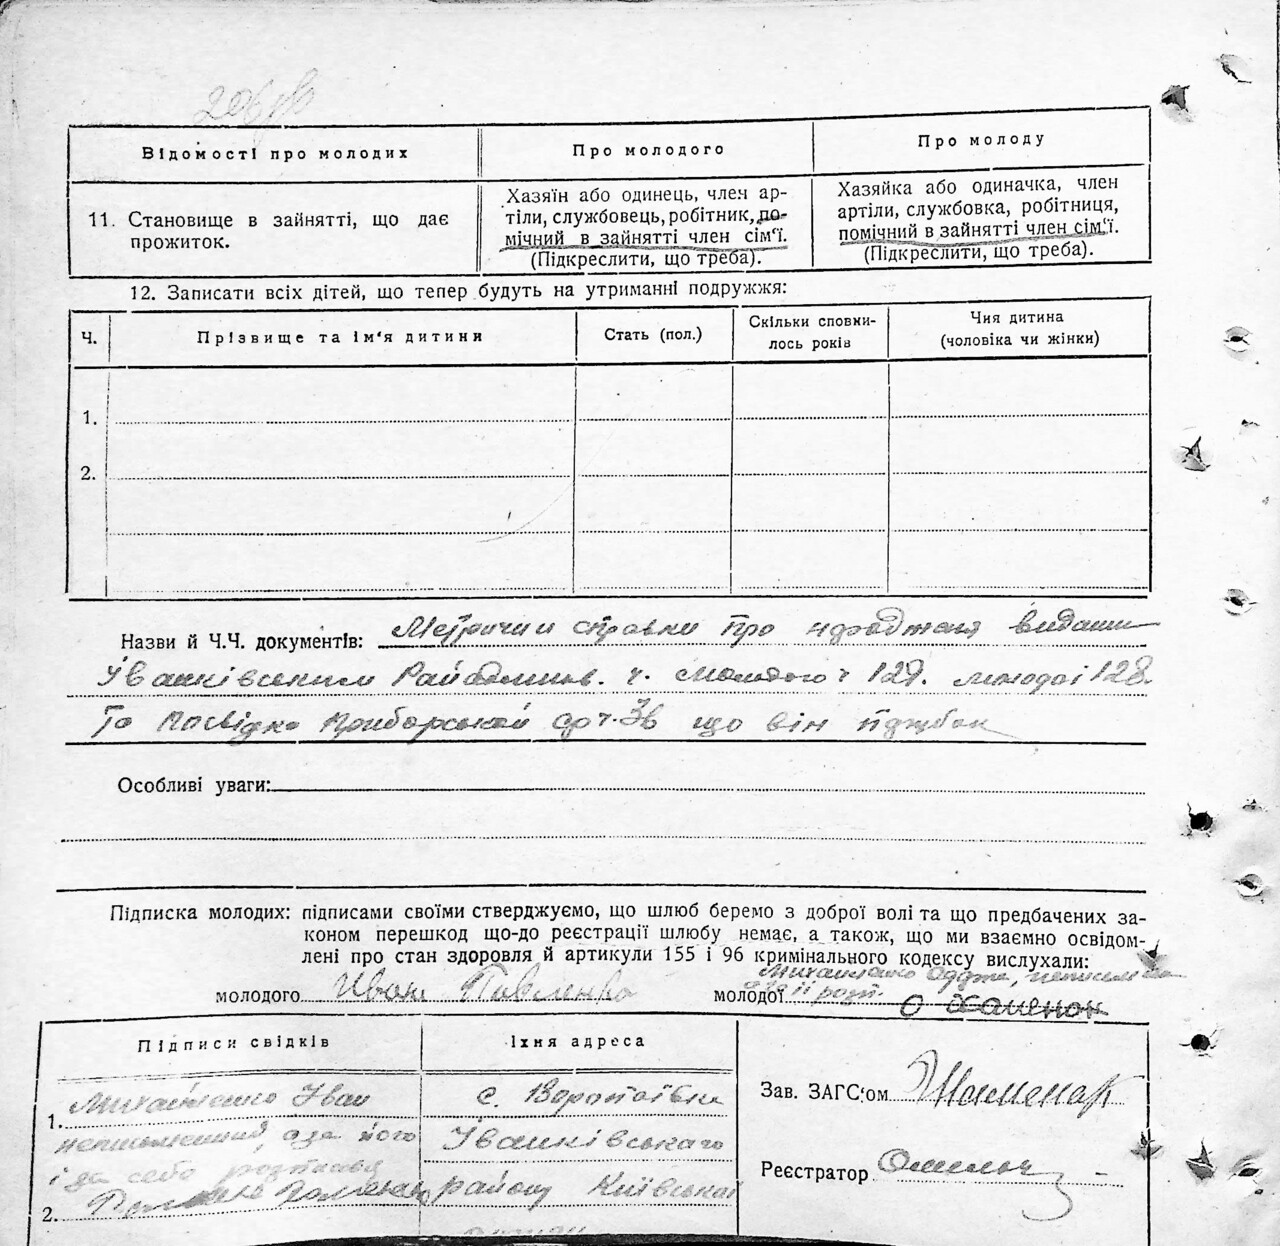 Відомості про молодих
Про молодого
Про молоду
11. Становище в зайнятті, що дає
прожиток.
Хазяїн або одинець, член ар-
тіли, службовець, робітник, по-
мічний в зайнятті член сім'ї.
(Підкреслити, що треба).
Хазяйка або одиначка, член
артіли, службовка, робітниця,
помічний в зайнятті член сім'ї.
(Підкреслити, що треба).
12. Записати всіх дітей, що тепер будуть на утриманні подружжя:
Ч.
Прізвище та ім'я дитини
Стать (пол.)
Скільки сповни-
лось років
Чия дитина
(чоловіка чи жінки)
1.
2.
Назви й Ч.Ч. документів: справки про видани
ч. молодого ч 127. молодої 128.
та посвідка ч. що він
Особливі уваги:
Підписка молодих: підписами своїми стверджуємо, що шлюб беремо з доброї волі та що предбачених за-
коном перешкод що-до реєстрації шлюбу немає, а також, що ми взаємно освідом-
лені про стан здоровля й артикули 155 і 96 кримінального кодексу вислухали:
молодого Іван Павленко
молодої
Підписи свідків
Їхня адреса
1. Іван
неписьменний, а за його
і за себе розписався
2.
с.
Іванківського
району Київської
Зав. ЗАГС'ом
Реєстратор